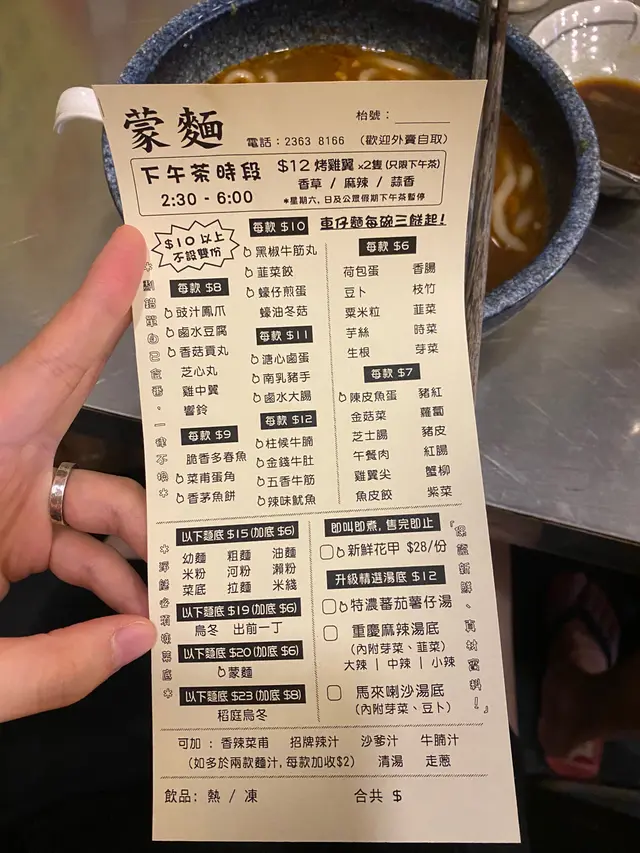 蒙麵
枱號：
電話：2363 8166 （歡迎外賣自取）
下午茶時段
2:30 - 6:00
$12 烤雞翼 x2隻 (只限下午茶)
香草 / 麻辣 / 蒜香
*星期六, 日及公眾假期下午茶暫停
$10 以上
不設雙份
車仔麵每碗三餸起!
每款 $8
豉汁鳳爪
鹵水豆腐
香菇貢丸
芝心丸
雞中翼
響鈴
每款 $9
脆香多春魚
菜甫蛋角
香茅魚餅
每款 $10
黑椒牛筋丸
韮菜餃
蠔仔煎蛋
蠔油冬菇
每款 $11
溏心鹵蛋
南乳豬手
鹵水大腸
每款 $12
柱候牛腩
金錢牛肚
五香牛筋
辣味魷魚
每款 $6
荷包蛋 香腸
豆卜 枝竹
粟米粒 韮菜
芋絲 時菜
生根 芽菜
每款 $7
陳皮魚蛋 豬紅
金菇菜 蘿蔔
芝士腸 豬皮
午餐肉 紅腸
雞翼尖 蟹柳
魚皮餃 紫菜
以下麵底 $15 (加底 $6)
幼麵 粗麵 油麵
米粉 河粉 瀨粉
菜底 拉麵 米綫
以下麵底 $19 (加底 $6)
烏冬 出前一丁
以下麵底 $20 (加底 $6)
蒙麵
以下麵底 $23 (加底 $8)
稻庭烏冬
即叫即煮, 售完即止
新鮮花甲 $28/份
升級精選湯底 $12
特濃蕃茄薯仔湯
重慶麻辣湯底
（內附芽菜、韮菜）
大辣 | 中辣 | 小辣
馬來喇沙湯底
（內附芽菜、豆卜）
『保證新鮮、真材實料！』
可加 : 香辣菜甫 招牌辣汁 沙爹汁 牛腩汁
（如多於兩款麵汁, 每款加收$2） 清湯 走蔥
飲品: 熱 / 凍
合共 $